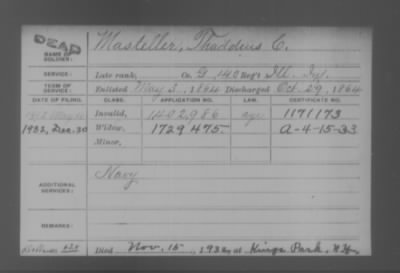 DEAD
NAME OF SOLDIER: Masteller, Thaddeus E.
SERVICE: Late rank, Co. G, 140 Reg't Ill. Inf.
TERM OF SERVICE: Enlisted May 3, 1864 Discharged Oct. 29, 1864
DATE OF FILING. CLASS. APPLICATION NO. LAW. CERTIFICATE NO.
1912 May Invalid, 1402986 age 1171173
1932, Dec. 30 Widow, 1729475 A-4-15-33
Minor,
ADDITIONAL SERVICES: Navy
REMARKS:
Died Nov. 15, 1932, at Kings Park, N.Y.